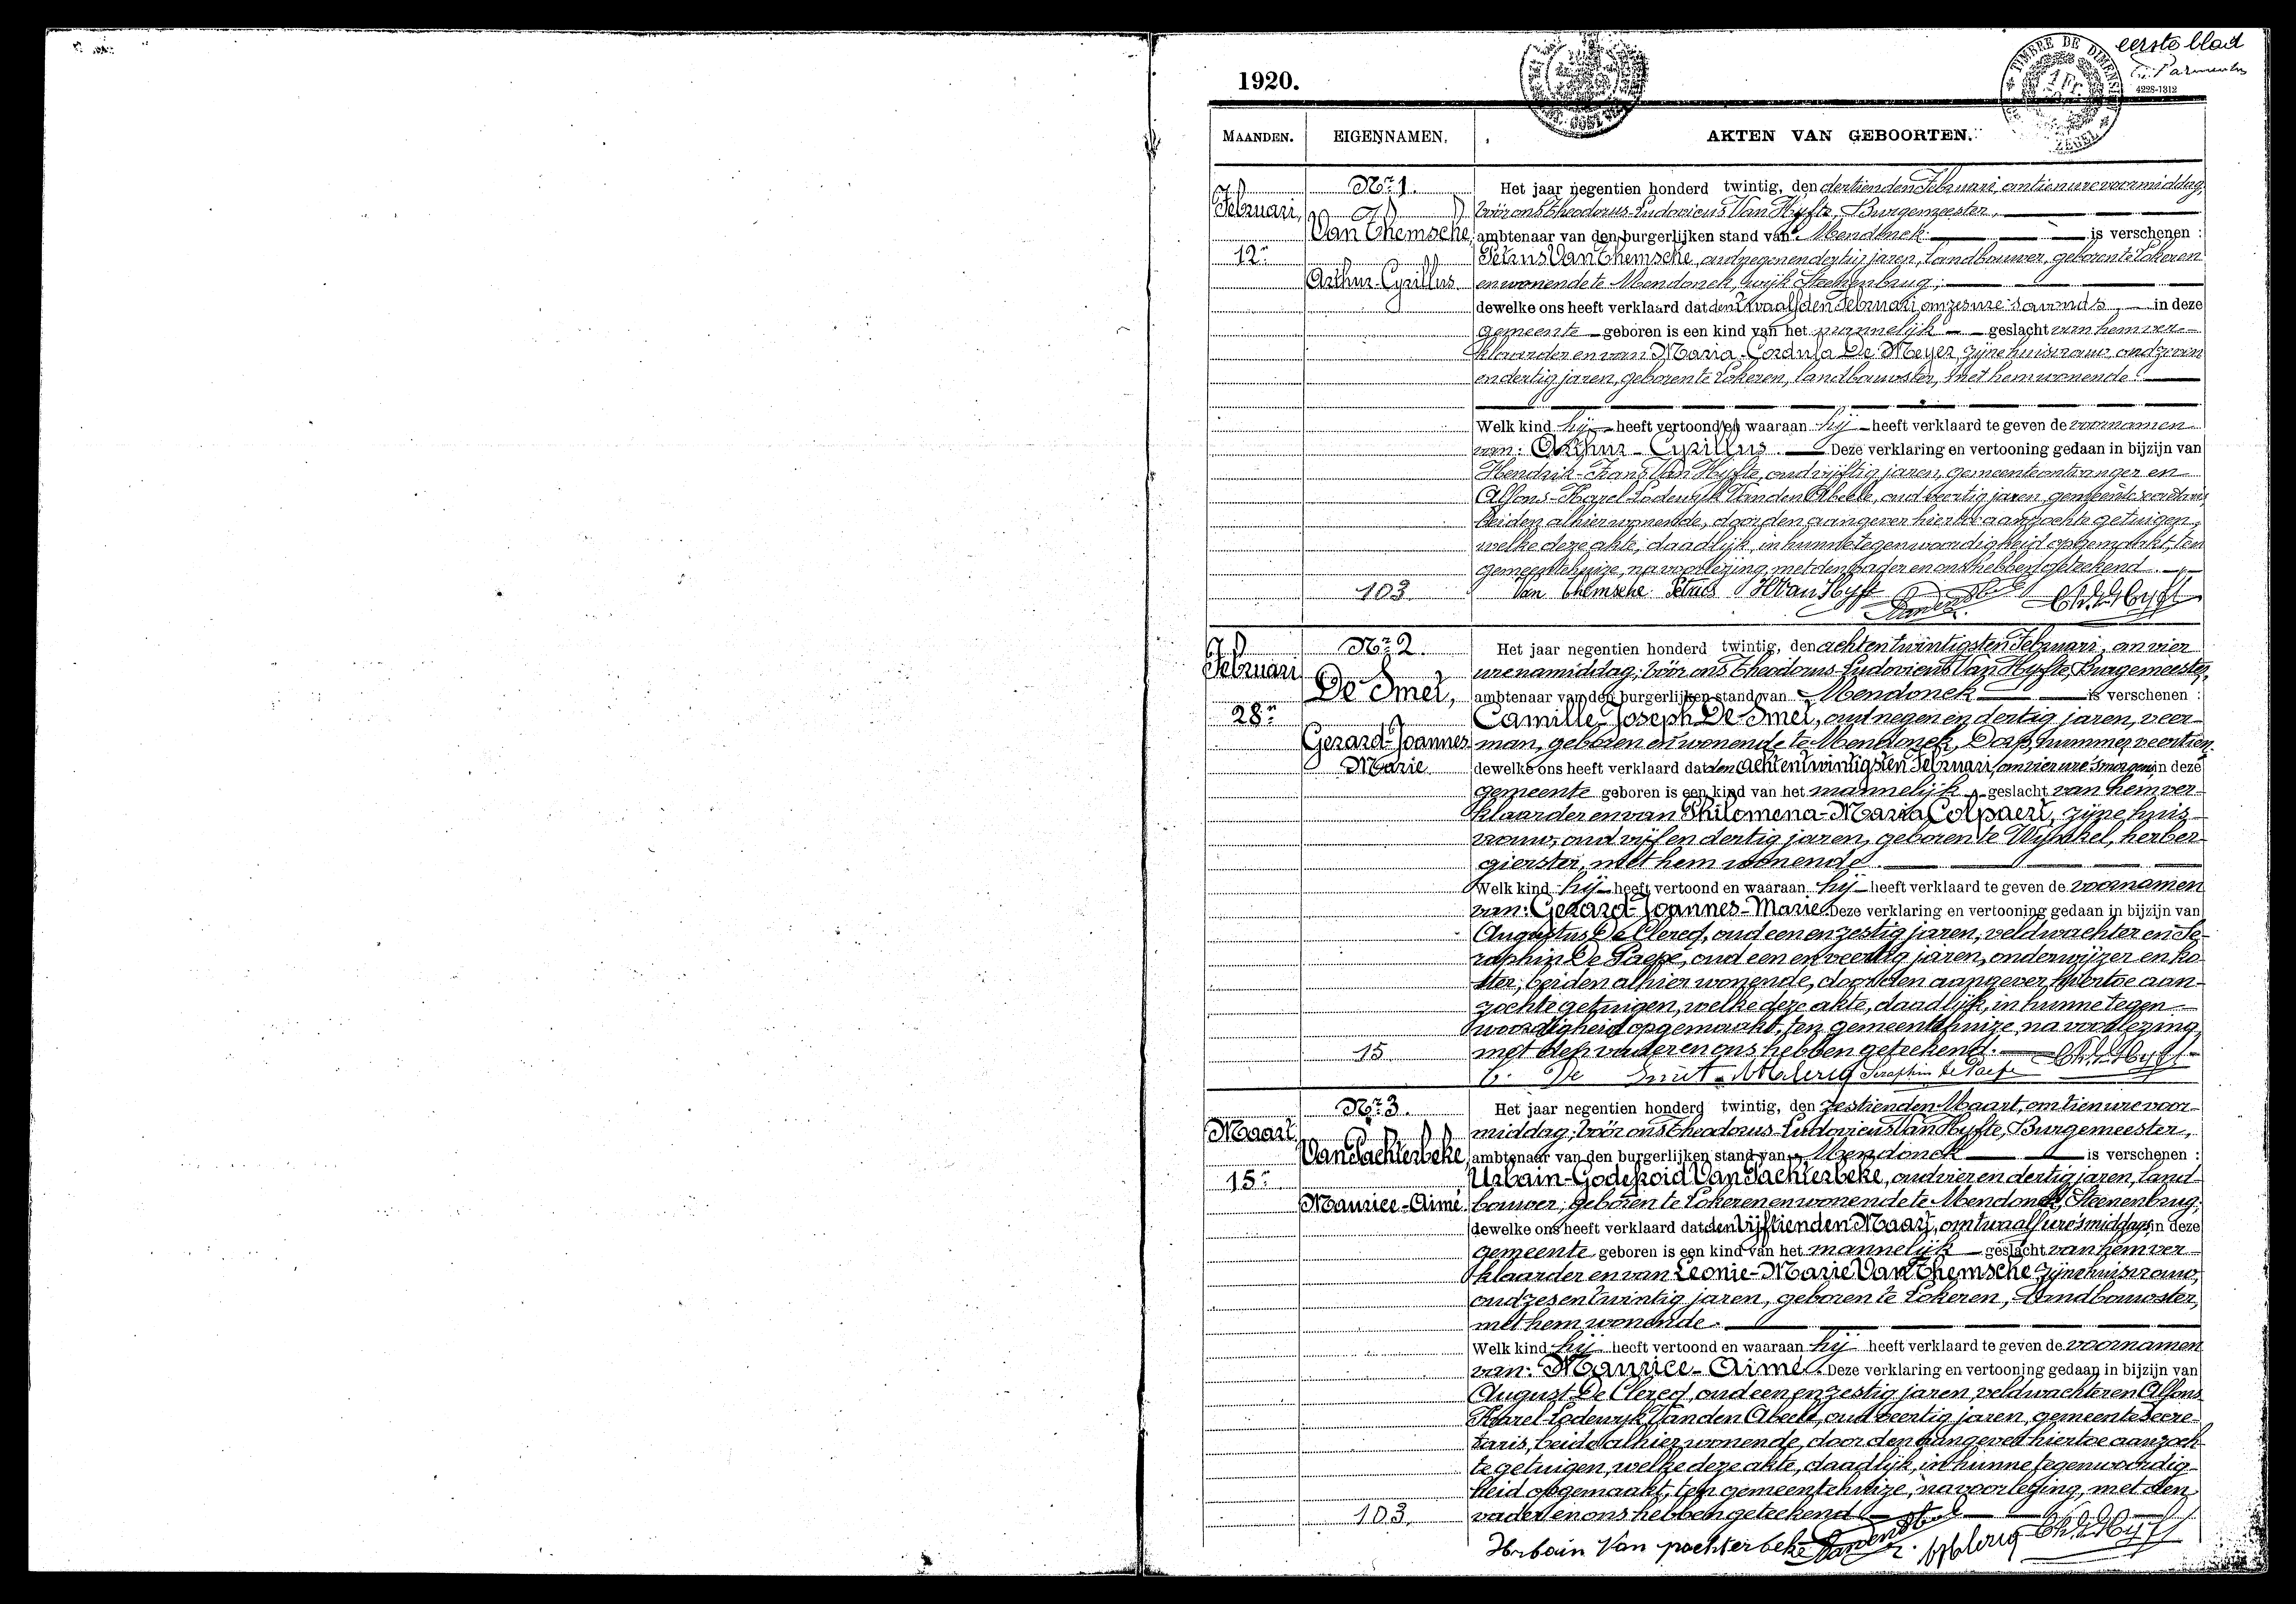 eerste blad
TIMBRE DE DIMENSION
1 Fr.
ZEGEL
4228-1312
1920.
MAANDEN. EIGENNAMEN. AKTEN VAN GEBOORTEN.
Februari, 12n
Nr 1.
Van Themsche,
Arthur-Cyrillus
103
Het jaar negentien honderd twintig, den dertienden Februari, om tien ure voormiddag,
vóór ons Theodorus-Ludovicus Van Hyfte, Burgemeester,
ambtenaar van den burgerlijken stand van Mendonck is verschenen :
Petrus Van Themsche, oud negenendertig jaren, landbouwer, geboren te Lokeren
en wonende te Mendonck, wijk Steenenbrug;
dewelke ons heeft verklaard dat den twaalfden Februari om zes ure 's avonds, in deze
gemeente geboren is een kind van het mannelijk geslacht van hem ver-
klaarder en van Maria-Cordula De Meyer, zijne huisvrouw, oud zeven
en dertig jaren, geboren te Lokeren, landbouwster, met hem wonende.
Welk kind hij heeft vertoond en waaraan hij heeft verklaard te geven de voornamen
van: Arthur-Cyrillus. Deze verklaring en vertooning gedaan in bijzijn van
Hendrik-Frans Van Hyfte, oud vijftig jaren, gemeenteontvanger en
Alfons-Karel-Lodewijk Van den Abeele, oud veertig jaren, gemeentesecretaris,
beiden alhier wonende, door den aangever hiertoe aanzochte getuigen,
welke deze akte, daadlijk, in hunne tegenwoordigheid opgemaakt, ten
gemeentehuize, na voorlezing, met den vader en ons hebben geteekend.
Van Themsche Petrus H Van Hyfte
Februari 28n
Nr 2.
De Smet,
Gerard-Joannes
Marie
15
Het jaar negentien honderd twintig, den achtentwintigsten Februari, om vier
ure namiddag; vóór ons Theodorus-Ludovicus Van Hyfte, Burgemeester,
ambtenaar van den burgerlijken stand van Mendonck is verschenen :
Camille-Joseph De Smet, oud negen en dertig jaren, voer-
man, geboren en wonende te Mendonck, Dorp, nummer veertien.
dewelke ons heeft verklaard dat den achtentwintigsten Februari, om vier ure 's morgens, in deze
gemeente geboren is een kind van het mannelijk geslacht van hem ver-
klaarder en van Philomena-Maria Colpaert, zijne huis-
vrouw, oud vijf en dertig jaren, geboren te Wynkel, herber-
gierster, met hem wonende
Welk kind hij heeft vertoond en waaraan hij heeft verklaard te geven de voornamen
van: Gerard-Joannes-Marie. Deze verklaring en vertooning gedaan in bijzijn van
Augustus De Clercq, oud een en zestig jaren, veldwachter en Se-
raphin De Paepe, oud een en veertig jaren, onderwijzer en ko-
ster, beiden alhier wonende, door den aangever hiertoe aan-
zochte getuigen, welke deze akte, daadlijk, in hunne tegen-
woordigheid opgemaakt, ten gemeentehuize, na voorlezing,
met den vader en ons hebben geteekend.
C. De Smet Seraphin De Paepe
Maart 15n
Nr 3.
Van Pachterbeke,
Maurice-Aimé.
103.
Het jaar negentien honderd twintig, den zestienden Maart, om tien ure voor-
middag; vóór ons Theodorus-Ludovicus Van Hyfte, Burgemeester,
ambtenaar van den burgerlijken stand van Mendonck is verschenen :
Urbain-Godefroid Van Pachterbeke, oud vier en dertig jaren, land-
bouwer, geboren te Lokeren en wonende te Mendonck, Steenenbrug;
dewelke ons heeft verklaard dat den vijftienden Maart, om twaalf ure 's middags, in deze
gemeente geboren is een kind van het mannelijk geslacht van hem ver-
klaarder en van Leonie-Marie Van Themsche zijne huisvrouw,
oud zes en twintig jaren, geboren te Lokeren, landbouwster,
met hem wonende.
Welk kind hij heeft vertoond en waaraan hij heeft verklaard te geven de voornamen
van: Maurice-Aimé. Deze verklaring en vertooning gedaan in bijzijn van
August De Clercq, oud een en zestig jaren, veldwachter en Alfons
Karel-Lodewijk Van den Abeele, oud veertig jaren, gemeentesecre-
taris, beide alhier wonende, door den aangever hiertoe aanzoch-
te getuigen, welke deze akte, daadlijk, in hunne tegenwoordig-
heid opgemaakt, ten gemeentehuize, na voorlezing, met den
vader en ons hebben geteekend
Urbain Van pachterbeke